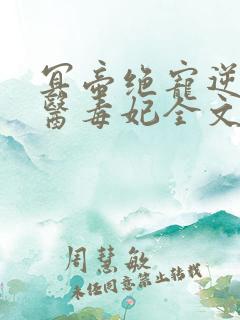 冥帝绝宠逆
醫毒妃全文
周慧敏
未经同意禁止转载